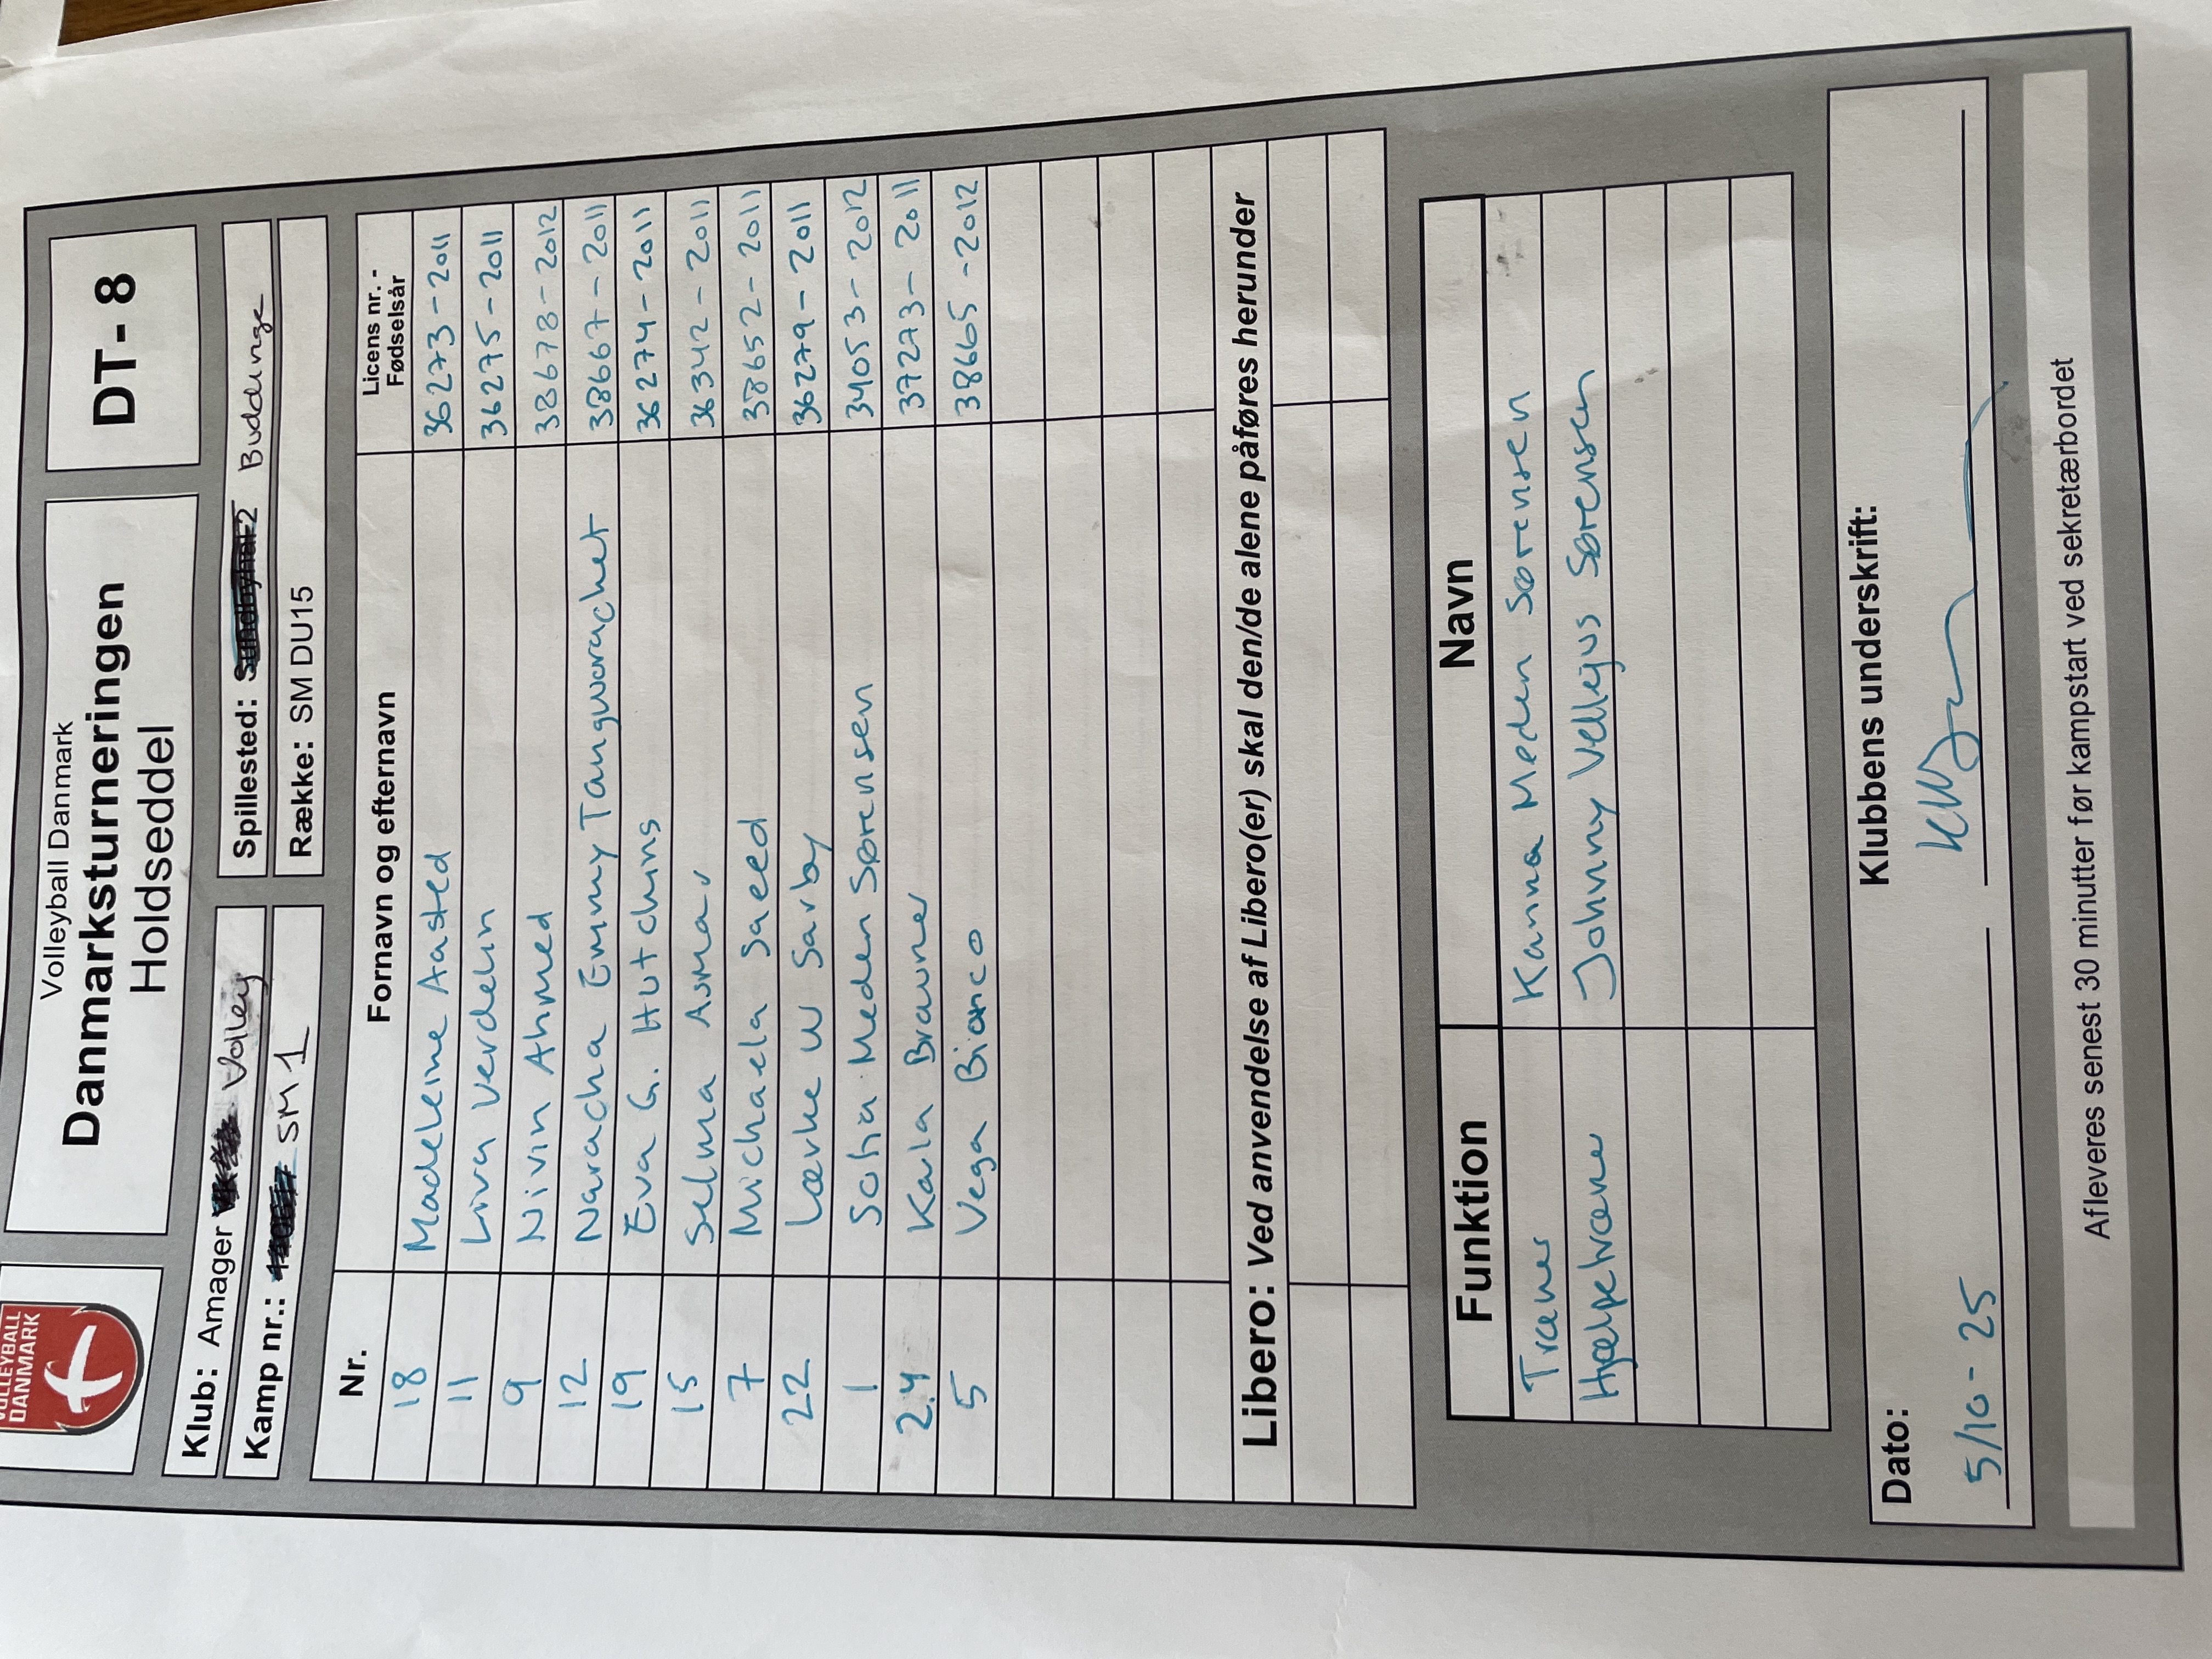 VOLLEYBALL
DANMARK
Volleyball Danmark
Danmarksturneringen
Holdseddel
DT- 8
Klub: Amager Volley
Spillested: Buddinge
Kamp nr.: SM 1
Række: SM DU15
Nr. Fornavn og efternavn Licens nr. - Fødselsår
18 Madeleine Aasted 36273-2011
11 Liva Verdelin 36275-2011
9 Nivin Ahmed 38678-2012
12 Naracha Emmy Tangworachet 38667-2011
19 Eva G. Hutchins 36274-2011
15 Selma Asmar 36342-2011
7 Michaela Saeed 38652-2011
22 Lærke W Sarby 36279-2011
1 Sofia Meden Sørensen 34053-2012
24 Karla Brauner 37273-2011
5 Vega Bianco 38665-2012
Libero: Ved anvendelse af Libero(er) skal den/de alene påføres herunder
Funktion Navn
Træner Kanna Meden Sørensen
Hjælpetræner Johnny Vellejus Sørensen
Dato: Klubbens underskrift:
5/10-25
Afleveres senest 30 minutter før kampstart ved sekretærbordet